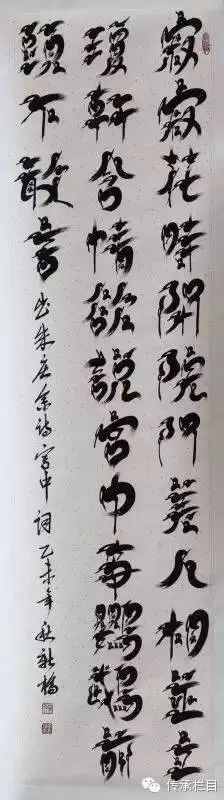 寂寂花時閉院門美人相並立
瓊軒含情欲說宮中事鸚鵡前
頭不敢言
书朱庆余诗宫中词乙未年秋
传承栏目